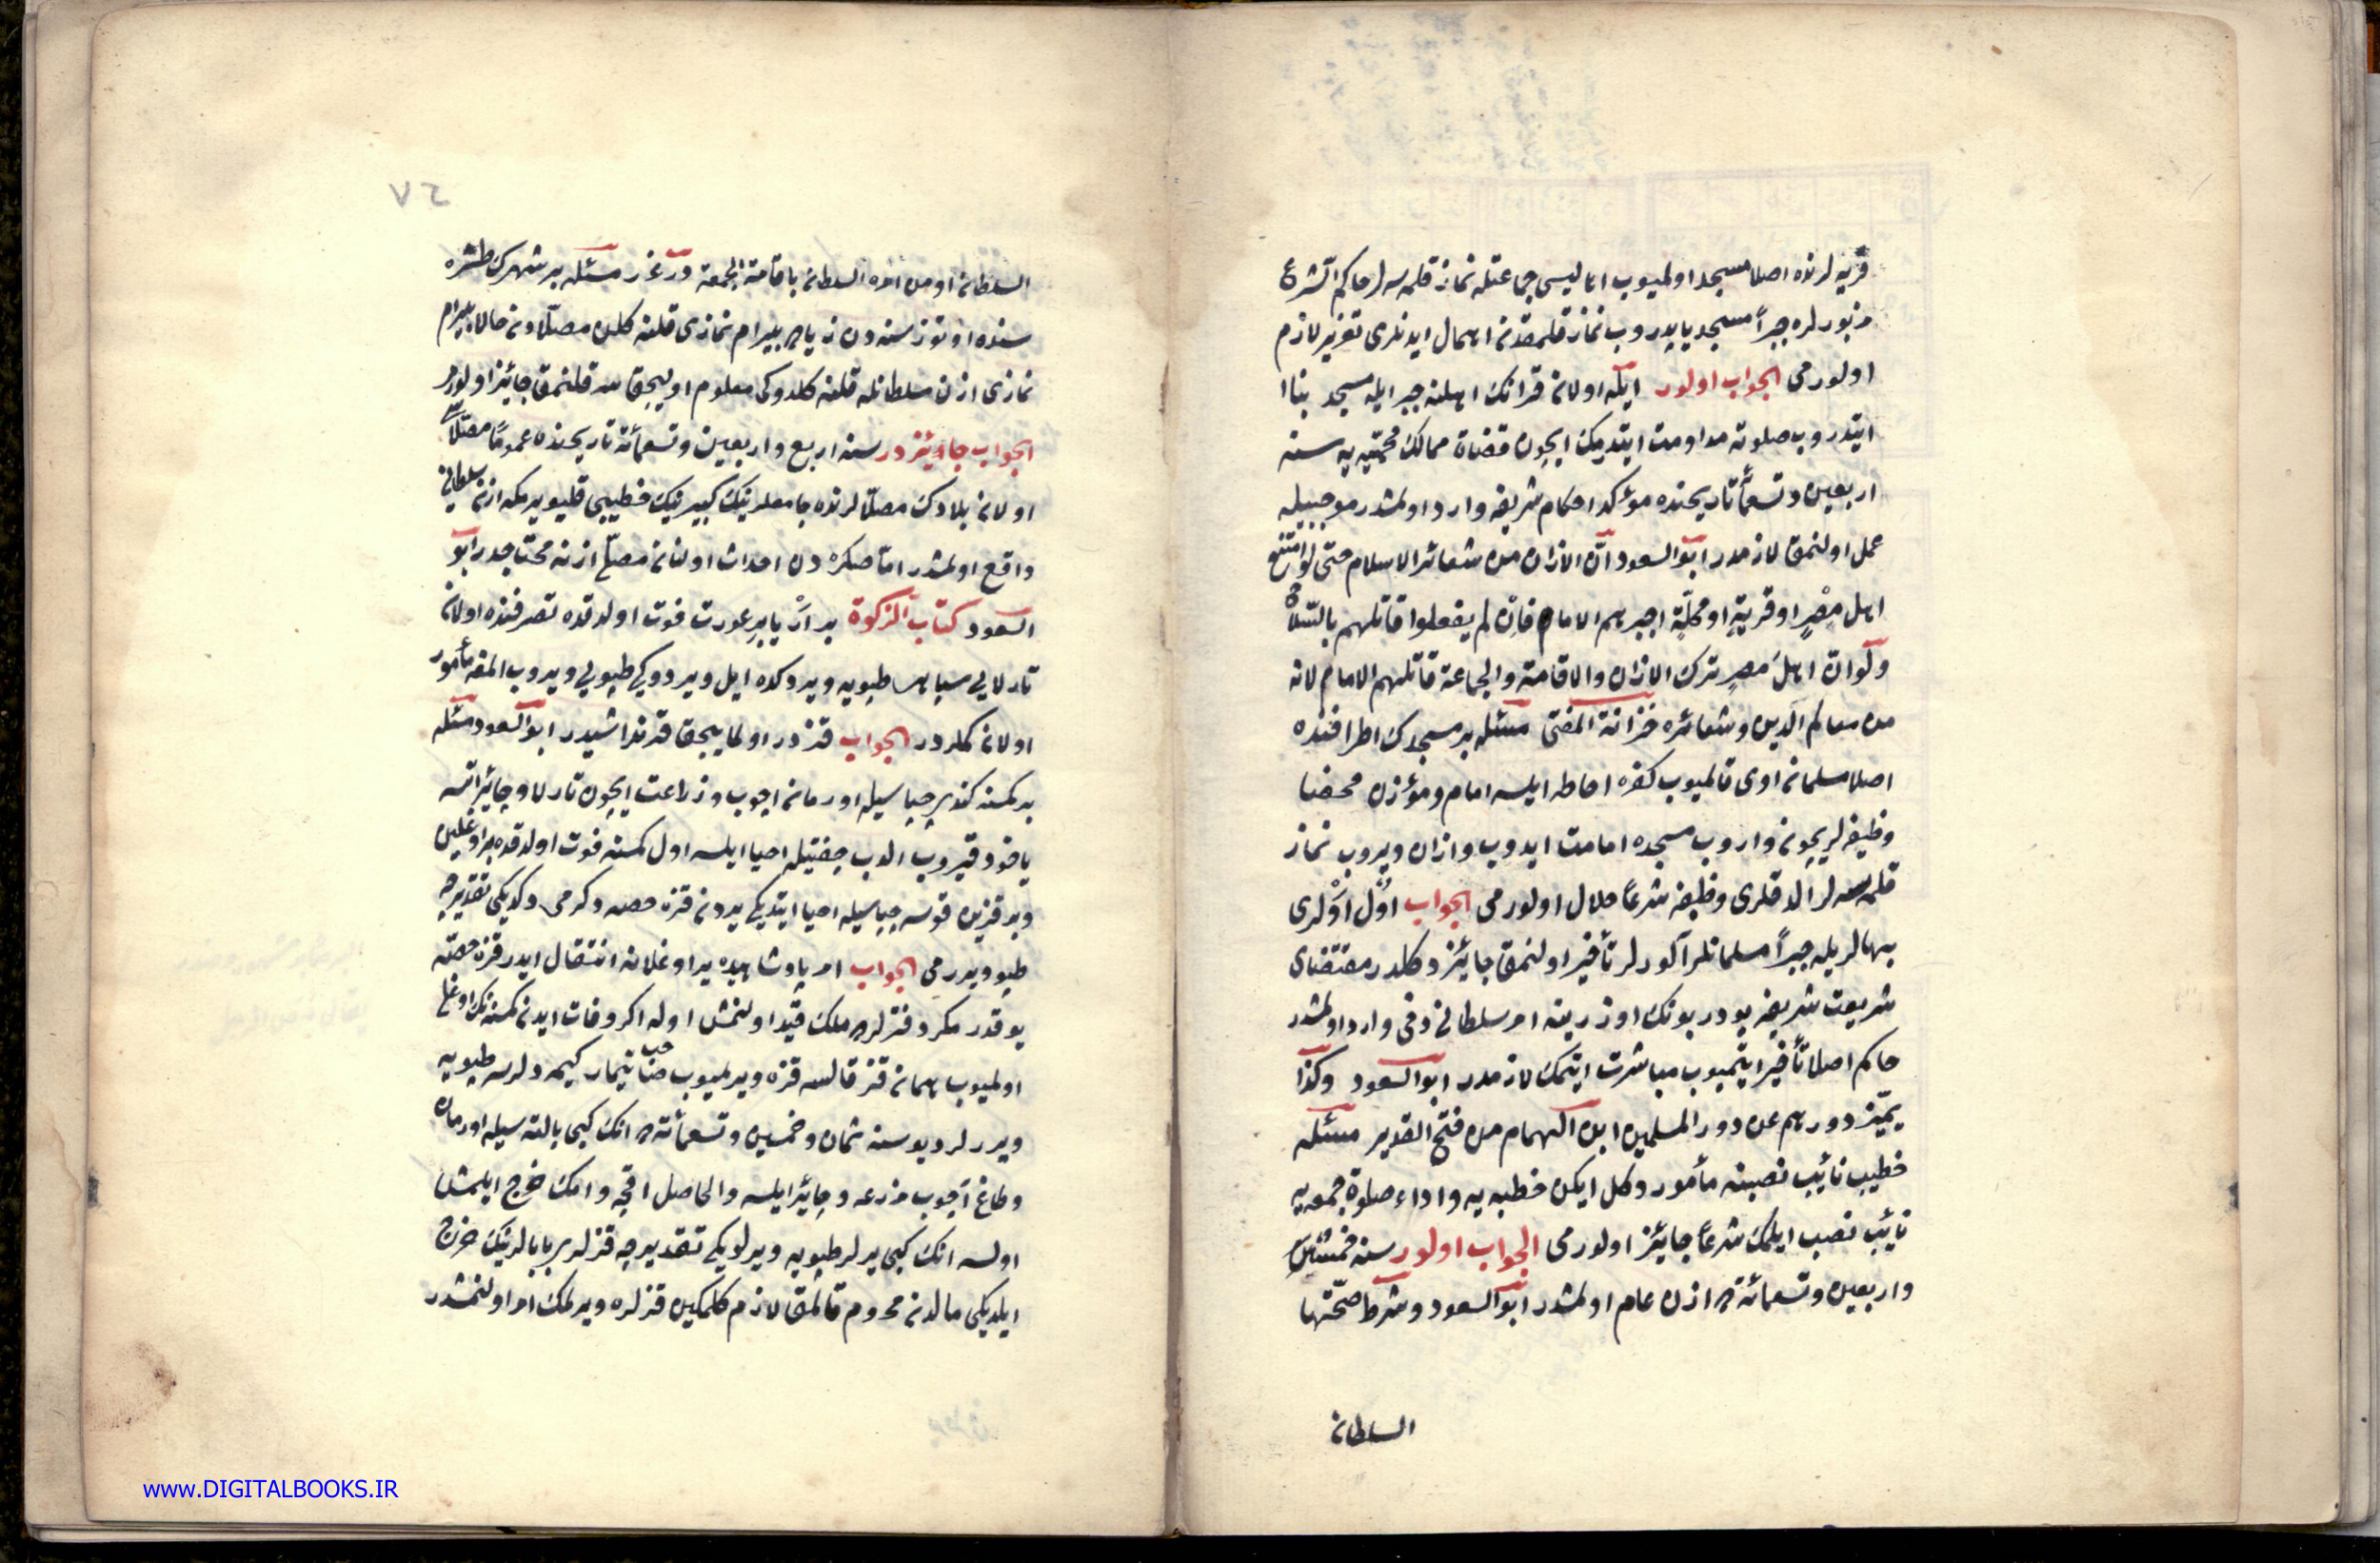 قريه لرنده اصلا مسجد اولميوب اهاليسى جماعتله نماز قلمسه لر حاكم الشرع
مزبورلره جبراً مسجد ياپدروب نماز قلمقدنه اهمال ايدنلرى تعزير لازم
اولورمى الجواب اولور ايله اولانه قرانك اهلنه جبرايله مسجد بنا
ايتدروب صلوته مداومت ايتدرمك ايچون قضاة ممالك محميه يه سنه
اربعين وتسعمأ تاريخنده مؤكد احكام شريفه وارد اولمشدر موجبيله
عمل اولنمق لازمدر ابوالسعود انّ الاذان من شعائر الاسلام حتى لو امتنع
اهل مصر او قرية او محلّة اجبرهم الامام فان لم يفعلوا قاتلهم بالسّلاح
ولو انّ اهل مصر ترك الاذان والاقامة والجماعة قاتلهم الامام لانه
من معالم الدين وشعائره خزانة المفتى مسئله بر مسجدك اطرافنده
اصلا مسلمانه اوى قالميوب كفره احاطه ايلسه امام ومؤذن محضا
وظيفه لريچونه واروب مسجده امامت ايدوب واذان ويروب نماز
قلمسه لر الدقلرى وظيفه شرعاً حلال اولورمى الجواب اول اولرى
بهالريله جبراً مسلمانلر آلورلر تأخير اولنمق جائيز دكلدر مقتضاى
شريعت شريفه بودر بونك اوزرينه امر سلطانى دخى وارد اولمشدر
حاكم اصلا تأخير ايتميوب مباشرت ايتمك لازمدر ابوالسعود وكذا
يميّز دورهم عن دور المسلمين ابن الهمام من فتح القدير مسئله
خطيب نائب نصبنه مأمور دكل ايكن خطبه يه واداء صلوة جمعه يه
نائب نصب ايلمك شرعاً جائيز اولورمى الجواب اولور سنه خمسين
واربعين وتسعمائة ده اذن عام اولمشدر ابوالسعود وشرط صحّتها
السلطانه
٧٤
السلطانه او من امره السلطانه باقامة الجمعة درغرر مسئله بر شهرك طشره
سنده اوتوز سنه دن زياده بيرام نمازى قلنه كلن مصلّادنه حالا بيرام
نمازى اذن سلطانله قلنه كلدوكى معلوم اوليجق سه قلنمق جائيز اولورمى
الجواب جائيزدر سنه اربع واربعين وتسعمائة تاريخنده عموماً مصلّا
اولانه بلادك مصلّالرنده جامعلرينك كبيرينك خطيبى قليويرمكه اذن سلطانى
واقع اولمشدر امّا صكره دن احداث اولنانه مصلّى اذنه محتاجدر ابو
السعود كتاب الزكوة بر ار يا بر عورت فوت اولدقده تصرفنده اولانه
تارلايى سپاهى طپويه ويردكده ايل ويردوكى طپويى ويروب المغه مأمور
اولانه كملردر الجواب قزدر اولمايجق قرنداشيدر ابوالسعود مسئله
بر كمسنه كندى چپاسيله اورمانه اچوب وزراعت ايچون تارلا وچاير اتسه
ياخود قيروب الوب چفتيله احيا ايلسه اول كمسنه فوت اولدقده بر اوغلين
وبر قزين قوسه چپاسيله احيا ايتديكى يردنه قزه حصه دكرمى دكديكى تقديرجه
طپو ويررمى الجواب امر پادشاهيده ير اوغلانه انتقال ايدر قزه حصّه
يوقدر مكر دفترلرده ملك قيد اولنمش اوله اكر وفات ايدنه كمسنه نك اوغلى
اولميوب همانه قز قالسه قزه ويرلميوب تيمار كيمه ديلرسه طپويه
ويررلردى بو سنه ثمان وخمسين وتسعمائة ده انك كبى بالته سيله اورمان
وطاغ آچوب مزرعه وچاير ايلسه والحاصل اقچه وامك خرج ايلمش
اولسه انك كبى يرلر طپويه ويرلويكى تقديرجه قزلر بابالرينك خرج
ايلديكى مالدنه محروم قالمق لازم كلمكين قزلره ويرلمك امر اولنمشدر
www.DIGITALBOOKS.IR